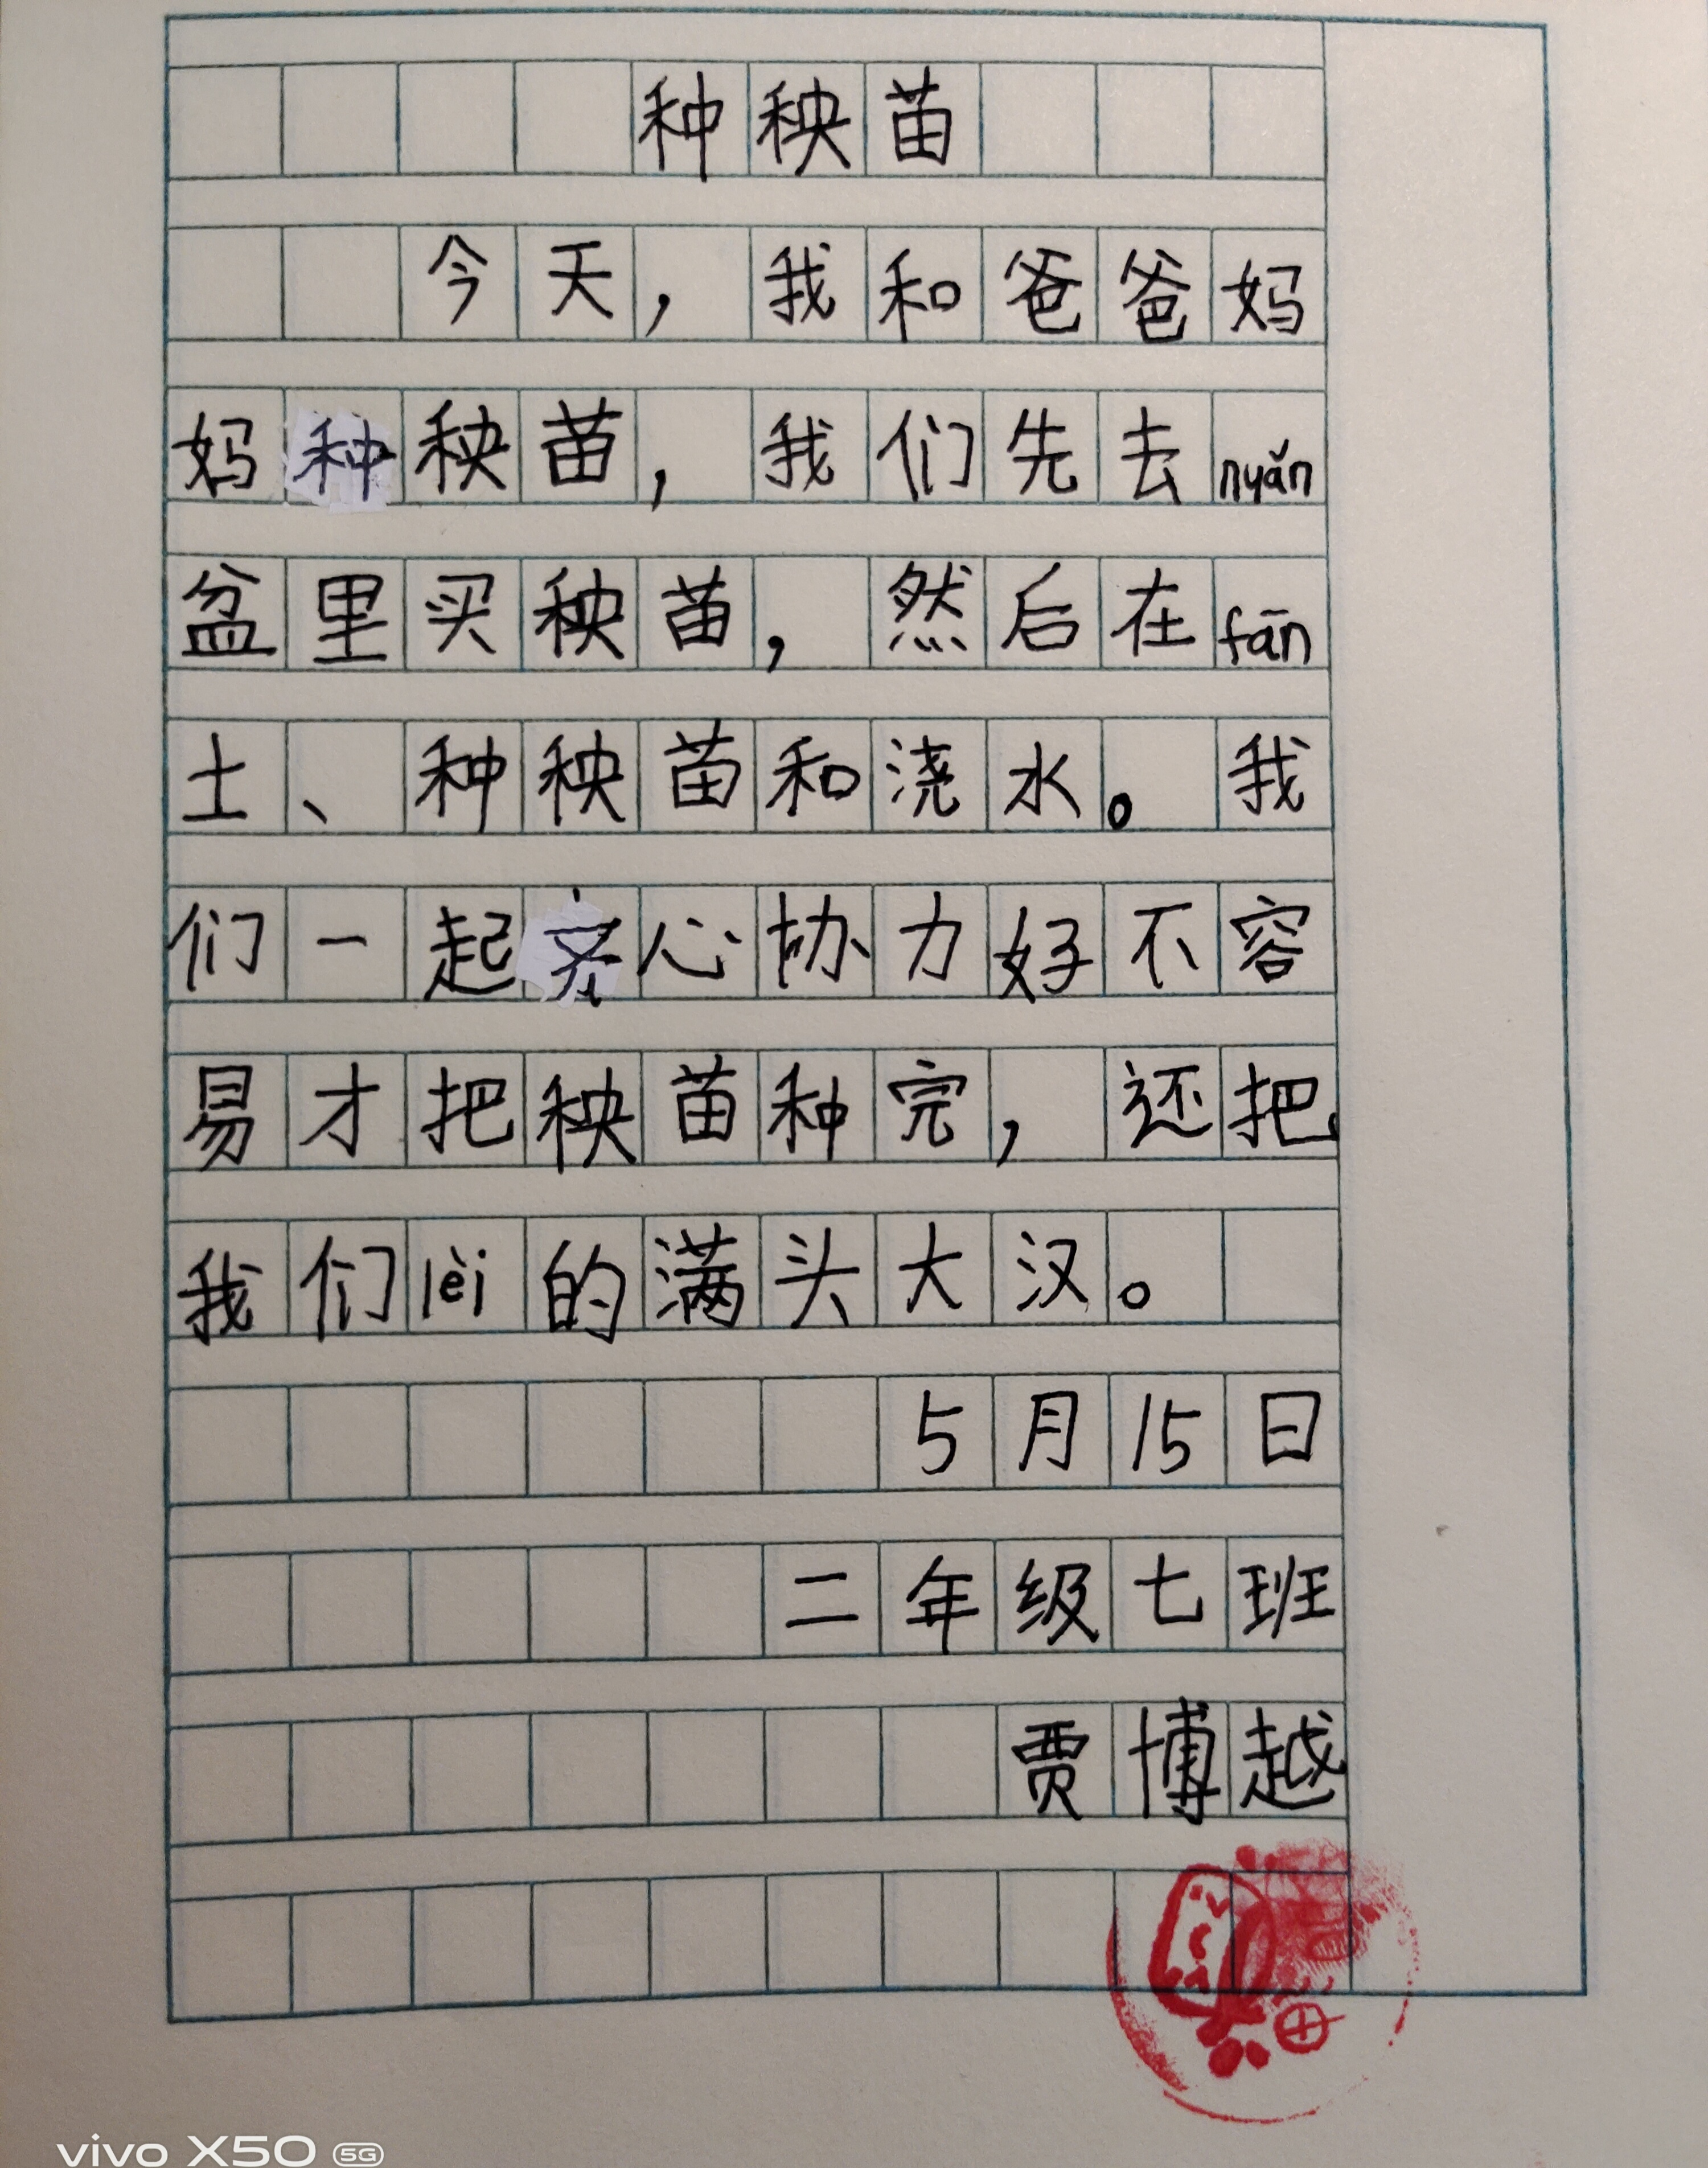 种秧苗
今天，我和爸爸妈
妈种秧苗，我们先去nyǎn
盆里买秧苗，然后在fān
土、种秧苗和浇水。我
们一起齐心协力好不容
易才把秧苗种完，还把
我们lèi的满头大汉。
5月15日
二年级七班
贾博越
vivo X50 5G